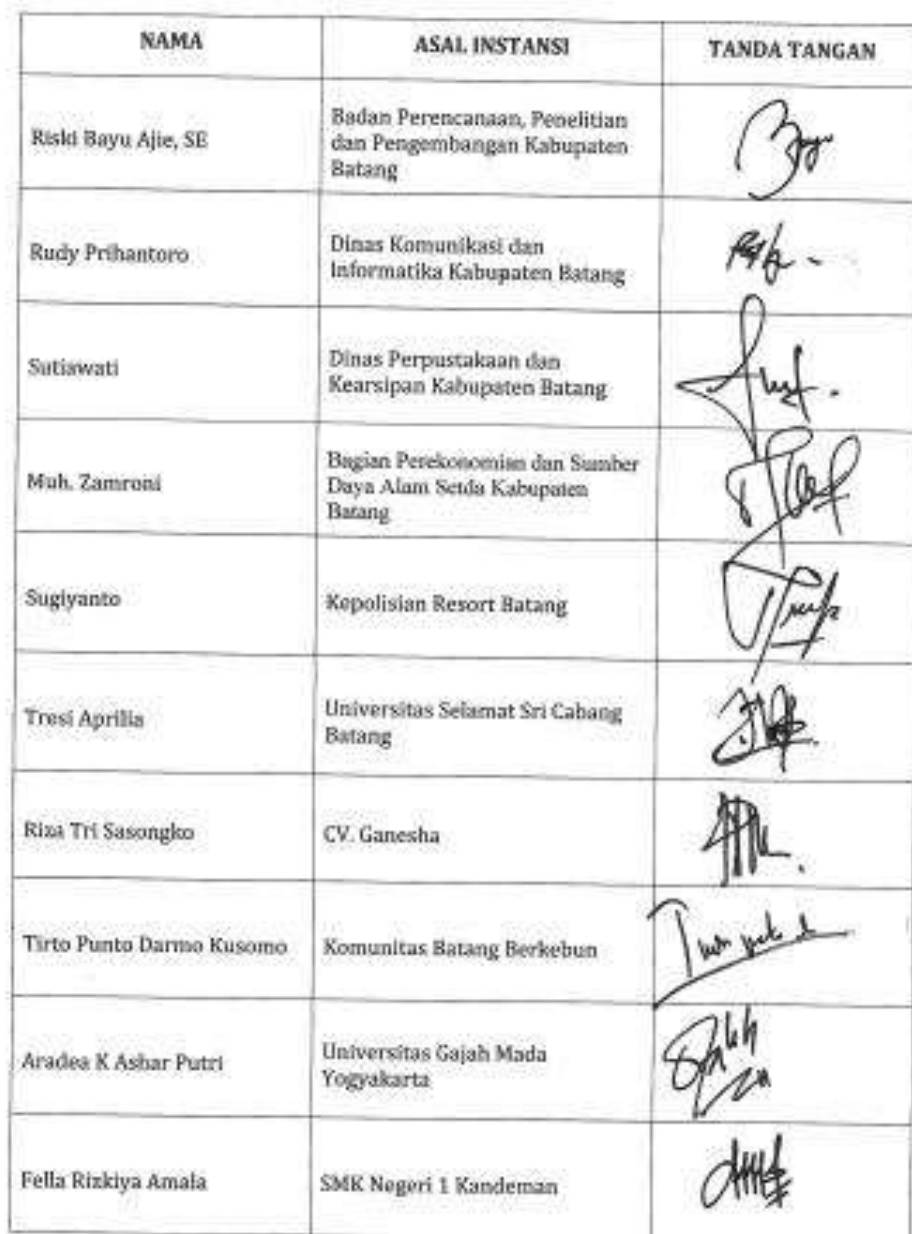 NAMA
ASAL INSTANSI
TANDA TANGAN
Riski Bayu Ajie, SE
Badan Perencanaan, Penelitian
dan Pengembangan Kabupaten
Batang
Rudy Prihantoro
Dinas Komunikasi dan
Informatika Kabupaten Batang
Sutiawati
Dinas Perpustakaan dan
Kearsipan Kabupaten Batang
Muh. Zamroni
Bagian Perekonomian dan Sumber
Daya Alam Setda Kabupaten
Batang
Sugiyanto
Kepolisian Resort Batang
Tresi Aprilia
Universitas Selamat Sri Cabang
Batang
Riza Tri Sasongko
CV. Ganesha
Tirto Punto Darmo Kusomo
Komunitas Batang Berkebun
Aradea K Ashar Putri
Universitas Gajah Mada
Yogyakarta
Fella Rizkiya Amala
SMK Negeri 1 Kandeman